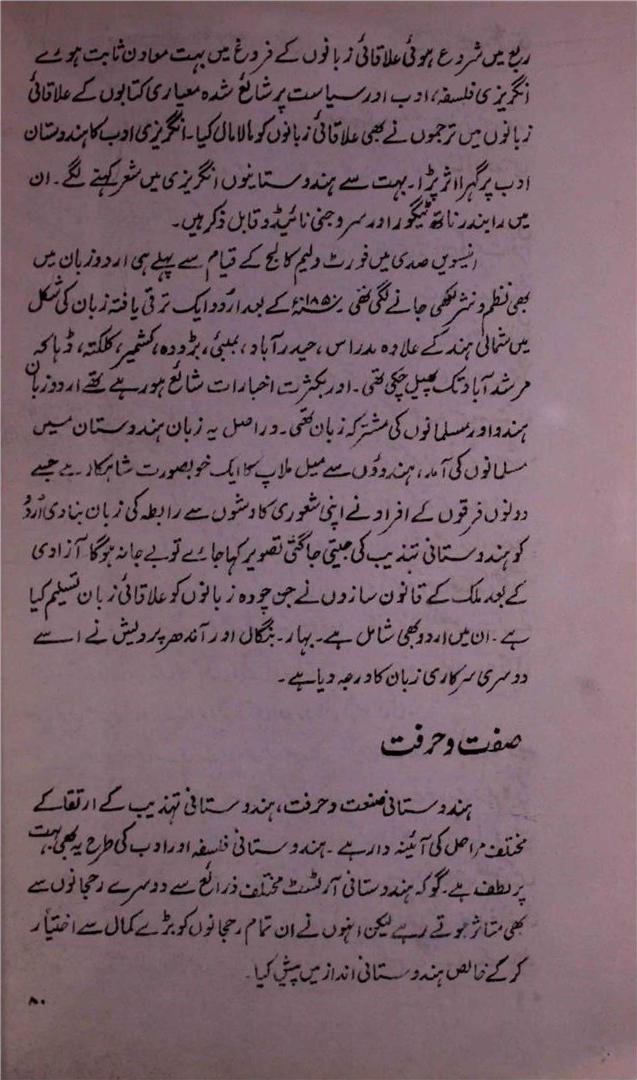 ربع میں شروع ہوئی علاقائی زبانوں کے فروغ میں بہت معاون ثابت ہوئے
انگریزی فلسفہ، ادب اور سیاست پر شائع شدہ معیاری کتابوں کے علاقائی
زبانوں میں ترجموں نے بھی علاقائی زبانوں کو مالا مال کیا۔ انگریزی ادب کا ہندوستان
ادب پر گہرا اثر پڑا۔ بہت سے ہندوستانیوں انگریزی میں شعر کہنے لگے۔ ان
میں رابندر ناتھ ٹیگور اور سروجنی نائیڈو قابل ذکر ہیں۔
انیسویں صدی میں فورٹ ولیم کالج کے قیام سے پہلے ہی اردو زبان میں
بھی نظم و نثر لکھی جانے لگی تھی ۱۸۵۰ء کے بعد اردو ایک ترقی یافتہ زبان کی شکل
میں شمالی ہند کے علاوہ مدراس، حیدرآباد، بمبئی، بڑودہ، کشمیر، کلکتہ، ڈہاکہ
مرشد آباد تک پھیل چکی تھی۔ اور بکثرت اخبارات شائع ہو رہے تھے اردو زبان
ہندو اور مسلمانوں کی مشترکہ زبان تھی۔ دراصل یہ زبان ہندوستان میں
مسلمانوں کی آمد، ہندوؤں سے میل ملاپ کا ایک خوبصورت شاہکار ہے جسے
دونوں فرقوں کے افراد نے اپنی شعوری کاوشوں سے رابطہ کی زبان بنا دی اُردُو
کو ہندوستانی تہذیب کی جیتی جاگتی تصویر کہا جائے تو بے جا نہ ہوگا آزادی
کے بعد ملک کے قانون سازوں نے جن چودہ زبانوں کو علاقائی زبان تسلیم کیا
ہے۔ ان میں اردو بھی شامل ہے۔ بہار۔ بنگال اور آندھر پردیش نے اسے
دوسری سرکاری زبان کا درجہ دیا ہے۔
صفت و حرفت
ہندوستانی صنعت و حرفت، ہندوستانی تہذیب کے ارتقا کے
مختلف مراحل کی آئینہ دار ہے۔ ہندوستانی فلسفہ اور ادب کی طرح یہ بھی بہت
پر لطف ہے۔ گو کہ ہندوستانی آرٹسٹ مختلف ذرائع سے دوسرے رحجانوں سے
بھی متاثر ہوتے رہے لیکن انہوں نے ان تمام رحجانوں کو بڑے کمال سے اختیار
کر کے خالص ہندوستانی انداز میں پیش کیا۔
۸۰